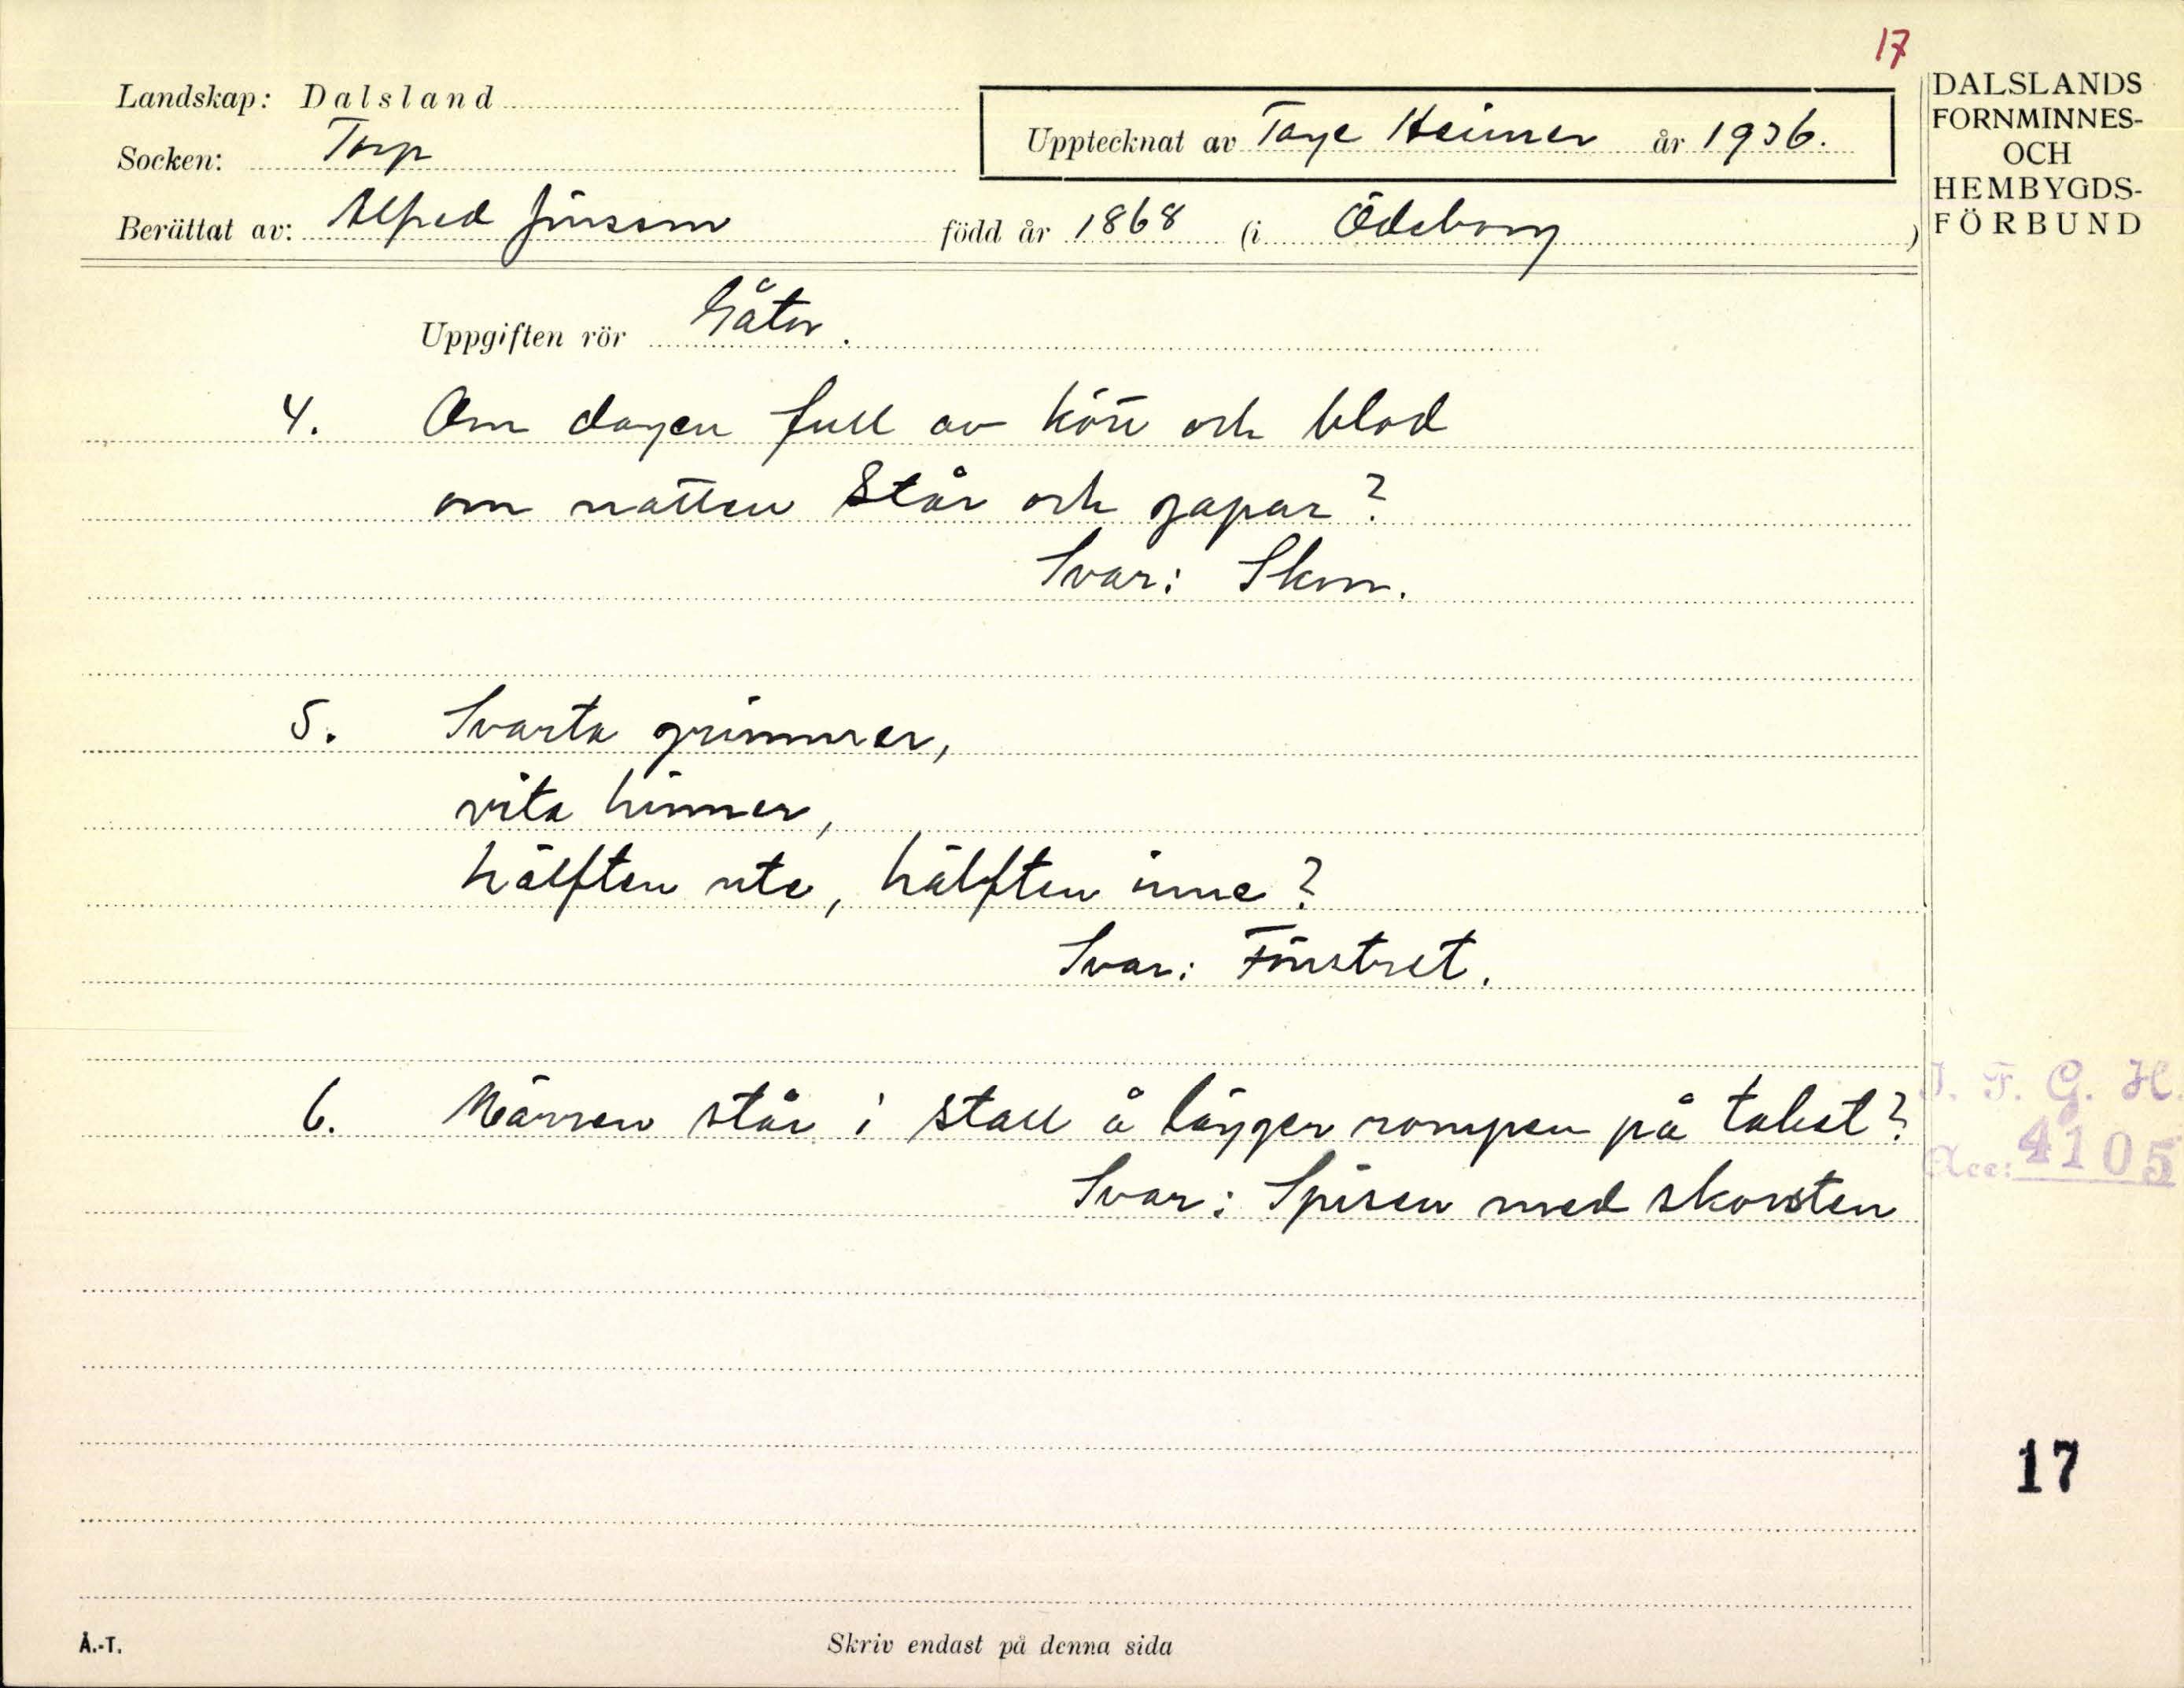 17
Landskap: Dalsland
Socken: Torp
Upptecknat av Tage Heimer år 1936.
Berättat av: Alfred Jönsson född år 1868 (i Ödeborg)
DALSLANDS
FORNMINNES-
OCH
HEMBYGDS-
FÖRBUND
Uppgiften rör Gåtor.
4. Om dagen full av kött och blod
om natten står och gapar?
Svar: Skon.
5. Svarta grimmer,
vita hinner,
hälften ute, hälften inne?
Svar: Fönstret.
6. Märren står i stall å lägger rompen på taket?
Svar: Spisen med skorsten
I. F. G. H.
Acc: 4105
17
Å.-T.
Skriv endast på denna sida